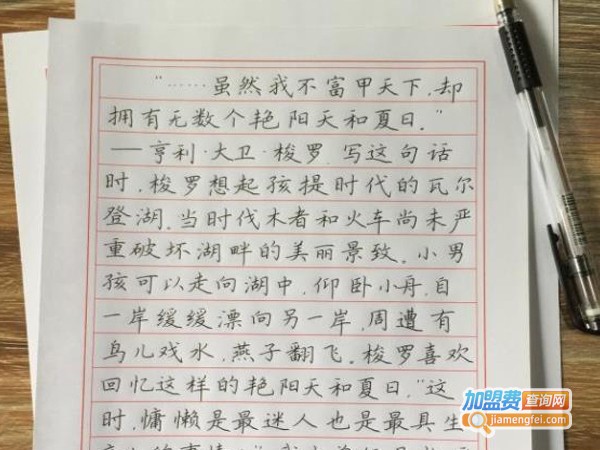 “……虽然我不富甲天下,却
拥有无数个艳阳天和夏日。”
——亨利·大卫·梭罗 写这句话
时,梭罗想起孩提时代的瓦尔
登湖。当时伐木者和火车尚未严
重破坏湖畔的美丽景致。小男
孩可以走向湖中,仰卧小舟,自
一岸缓缓漂向另一岸,周遭有
鸟儿戏水,燕子翻飞。梭罗喜欢
回忆这样的艳阳天和夏日,“这
时,慵懒是最迷人也是最具生
加盟费查询网
www.jiamengfei.com